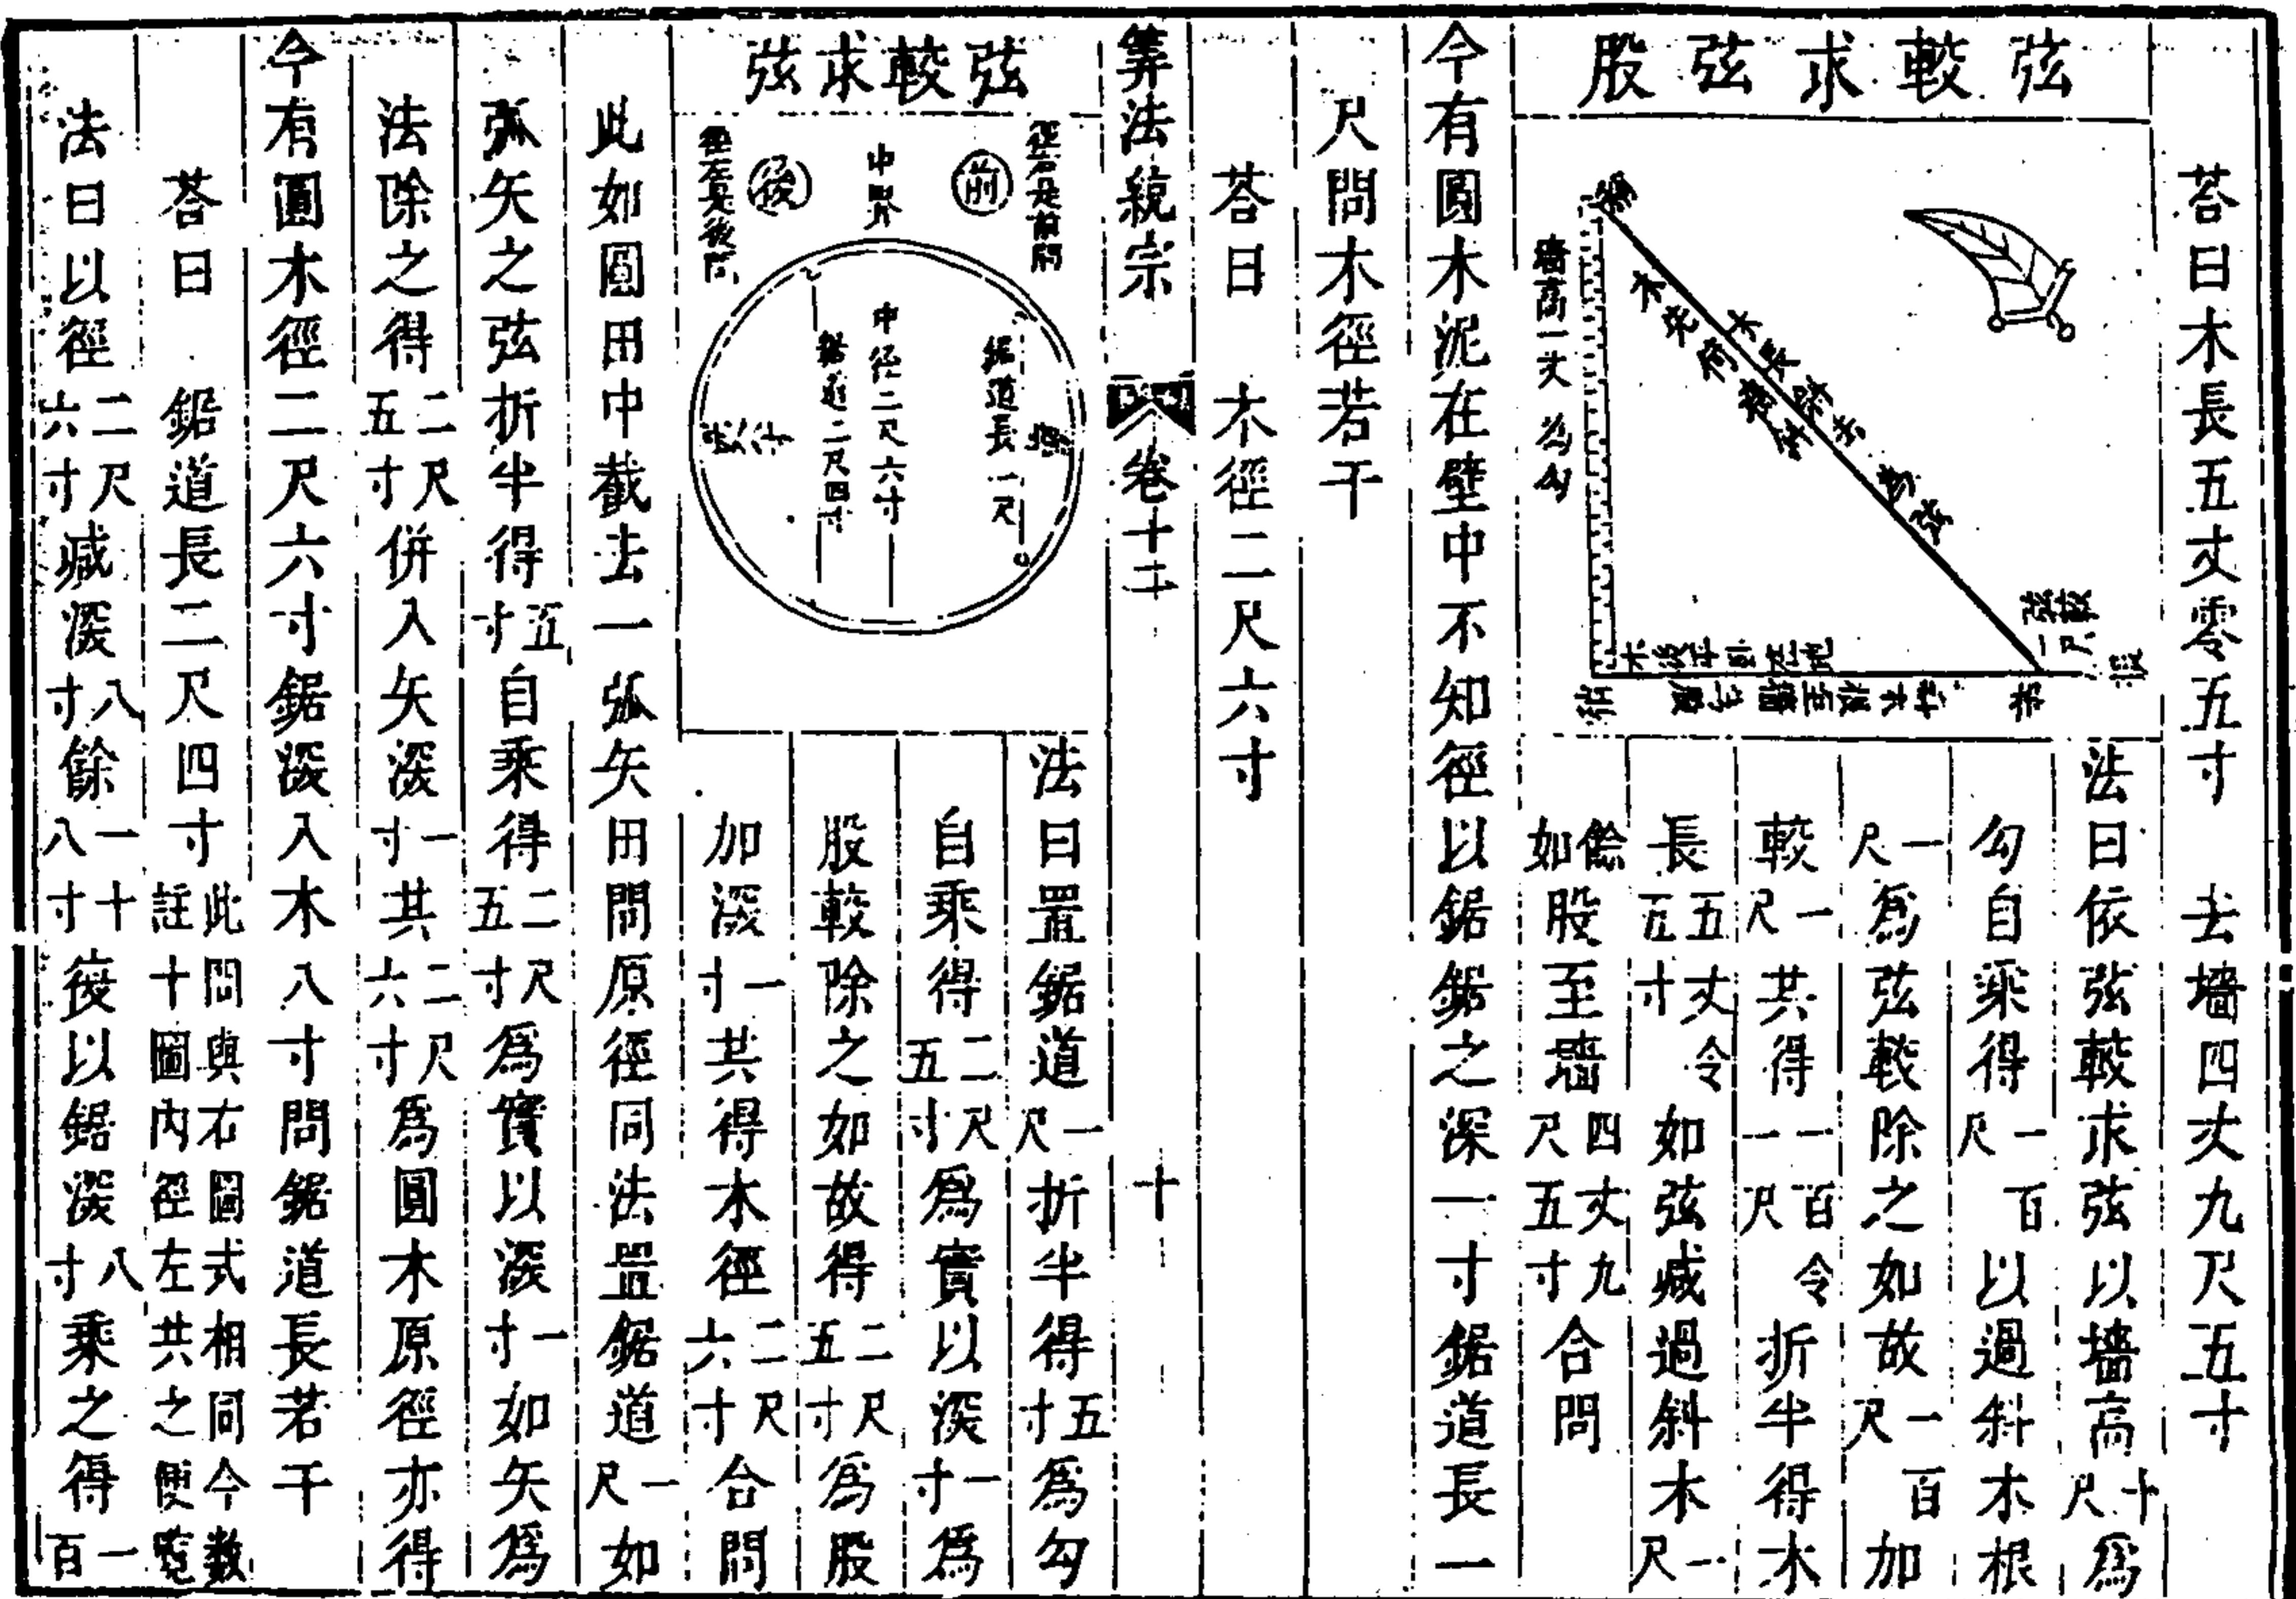 荅曰木長五丈零五寸　去墻四丈九尺五寸
弦較求弦股
墻高一丈為勾
弦較一尺
法曰依弦較求弦以墻高十尺爲
勾自乘得一百尺以過斜木根
一尺爲弦較除之如故一百尺加
較一尺共得一百令一尺折半得木
長五丈令五寸如弦减過斜木一尺
餘如股至墻四丈九尺五寸合問
今有圓木泥在壁中不知徑以鋸鋸之深一寸鋸道長一
尺問木徑若干
荅日　木徑二尺六寸
筭法統宗　卷十二　十
弦較求弦
徑右是前問
前
中界
後
徑左是後問
鋸道長一尺
中徑二尺六寸
鋸道二尺四寸
法曰置鋸道一尺折半得五寸爲勾
自乘得二尺五寸爲實以深一寸爲
股較除之如故得二尺五寸爲股
加深一寸共得木徑二尺六寸合問
此如圓田中截去一弧矢田問原徑同法置鋸道一尺如
弧矢之弦折半得五寸自乘得二尺五寸爲實以深一寸如矢爲
法除之得二尺五寸併入矢深一寸共二尺六寸爲圓木原徑亦得
今有圓木徑二尺六寸鋸深入木八寸問鋸道長若干
荅曰　鋸道長二尺四寸此問與右圖式相同今數註十圖內徑左共之便覽
法曰以徑二尺六寸减深八寸餘一十八寸復以鋸深八寸乘之得一百